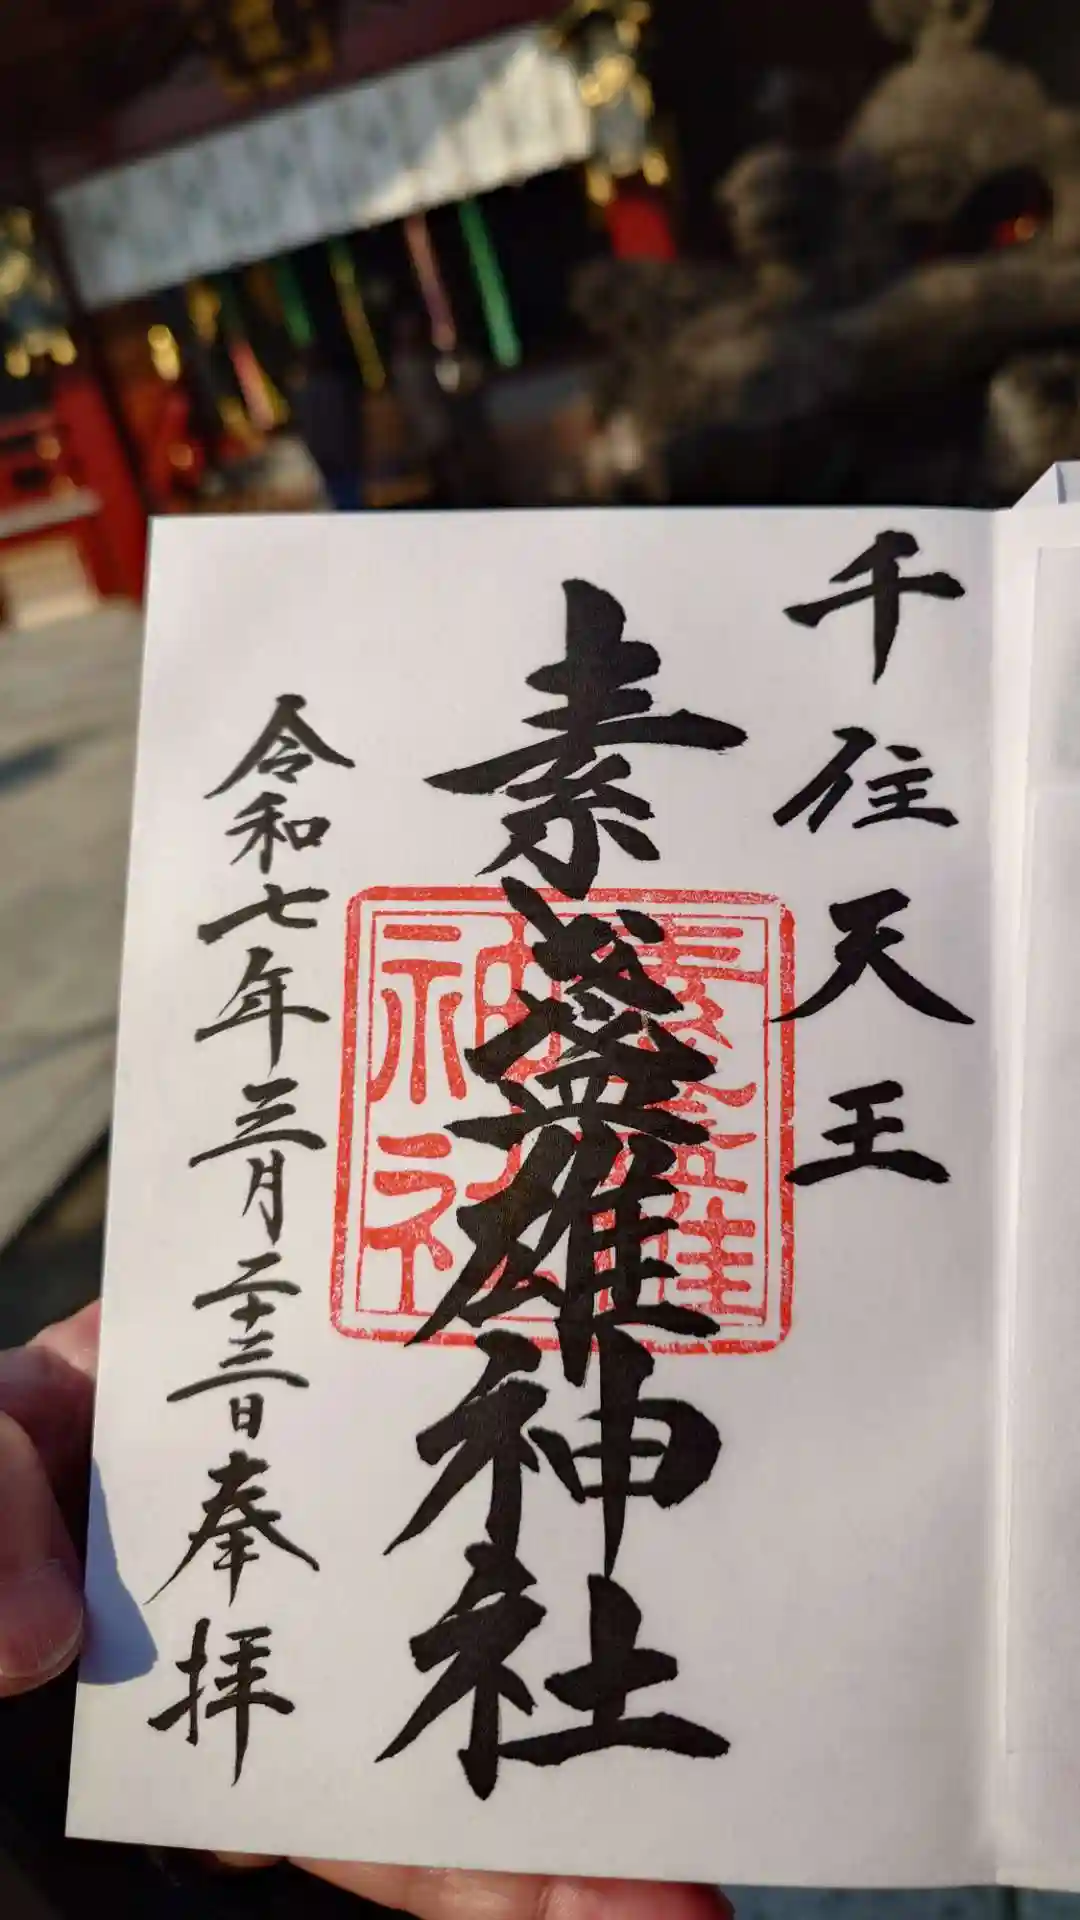 千住天王
素盞雄神社
素盞雄
神社
令和七年三月二十三日奉拝